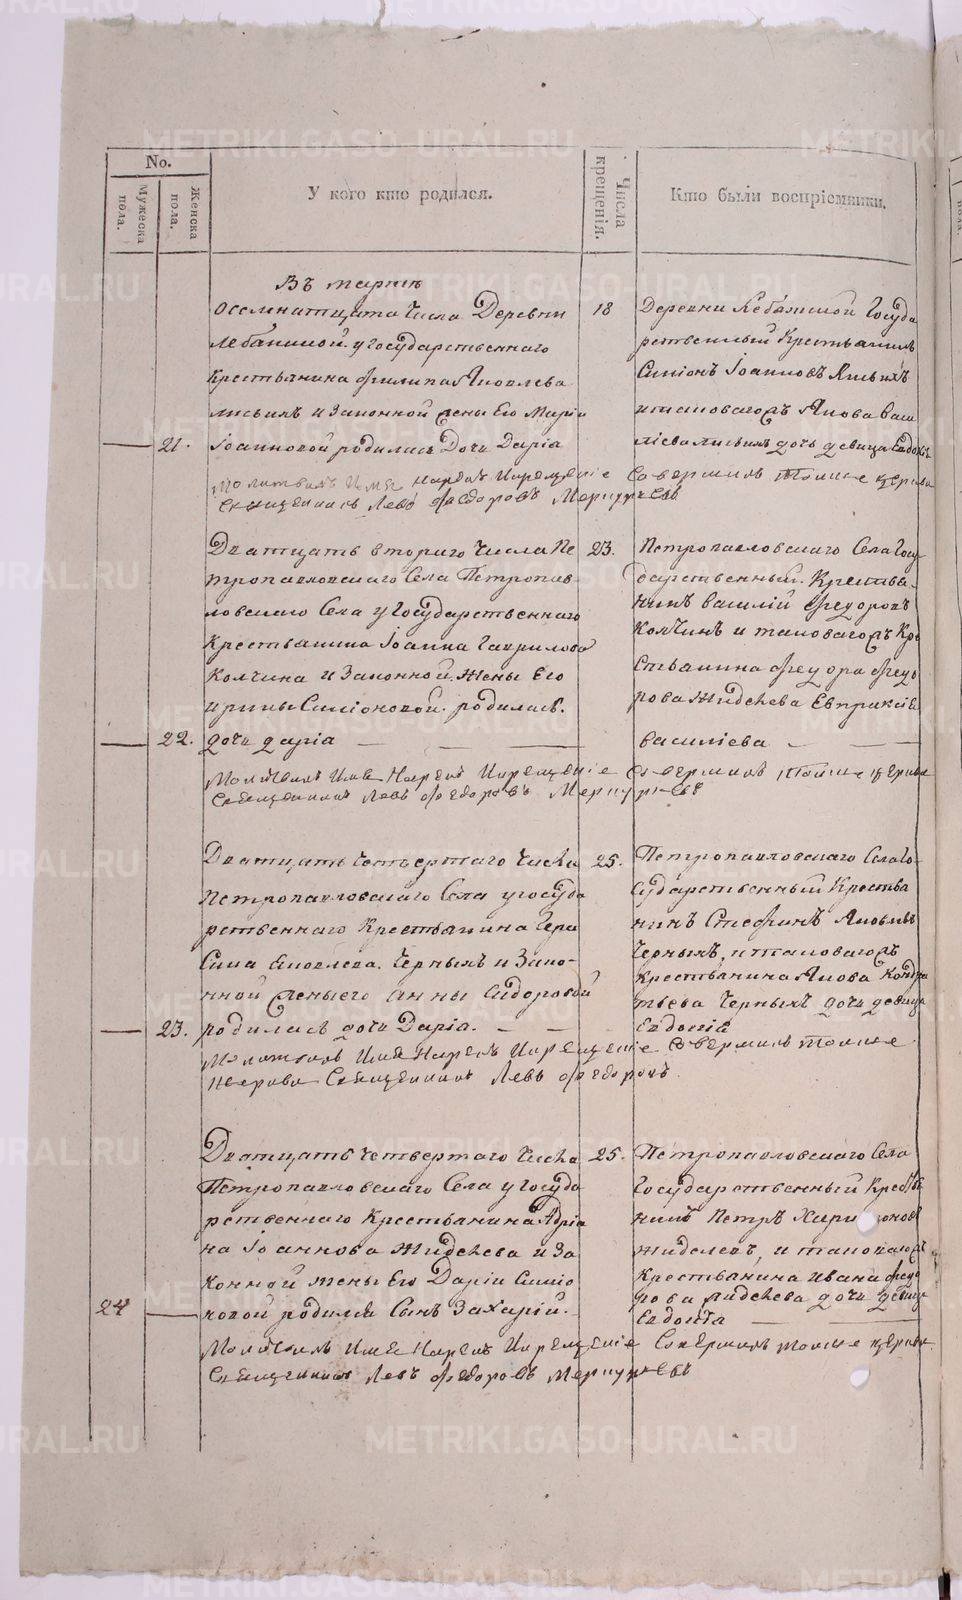 METRIKI.GASO-URAL.RU
No.
Мужеска пола.
Женска пола.
У кого кто родился.
Числа крещенія.
Кто были воспріемники.
Въ мартѣ
осемнатцата Числа Деревни
Лебажской у государственнаго
Крестьянина Филипа Яковлева
и Законной жены Его Маріи
21. Іоанновой родилась Дочь Даріа
18
Деревни Лебажской Госуда
рственный Крестьянинъ
Симіонъ Іоанновъ
и таковагожъ Якова Васи
лиева дочь девица Евдокія
Молитвилъ Имя нарекъ И крещеніе Совершилъ Тойже церкви
Священникъ Левъ Федоровъ Меркурьевъ
Дватцать втораго Числа Пе
тропавловскаго Села Петропав
ловскаго Села у Государственнаго
Крестьанина Іоанна Гаврилова
Колчина и Законной Жены Его
Ирины Симіоновой родилась
22. дочь даріа
23.
Петропавловскаго Села Госу
дарственный Крестьа
нинъ Василій Федоровъ
Колчинъ и таковагожъ Кре
стьанина Федора Федо
рова Жиделева Евпраксіа
Василіева
Молитвилъ Имя Нарекъ И крещеніе Совершилъ Тойже церкви
Священникъ Левъ Федоровъ Меркурьевъ
Дватцать Четвертаго Числа
Петропавловскаго Села у госуда
рственнаго Крестьянина Гера
сима Яковлева Черныхъ и Зако
нной жены его Анны Сидоровой
23. родилась дочь Даріа.
25.
Петропавловскаго Села Го
сударственный Крестьа
нинъ Стефанъ Яковлевъ
Черныхъ, и таковагожъ
Крестьанина Якова Кондра
тьева Черныхъ дочь девица
Евдокіа
Молитвилъ Имя Нарекъ И крещеніе Совершилъ Тойже
Церкви Священникъ Левъ Федоровъ
Дватцать четвертаго Числа
Петропавловскаго Села у Госуда
рственнаго Крестьанина Адріа
на Іоаннова Жиделева и За
конной жены Его Даріи Симіо
24 новой родилса Сынъ Захарій.
25.
Петропавловскаго Села
Государственный Крестьа
нинъ Петръ Харитоновъ
Жиделевъ, и таковагожъ
Крестьанина Ивана Федо
рова Жиделева дочь девица
Евдокіа
Молитвилъ Имя Нарекъ И крещеніе Совершилъ тойже церкви
Священникъ Левъ Федоровъ Меркурьевъ